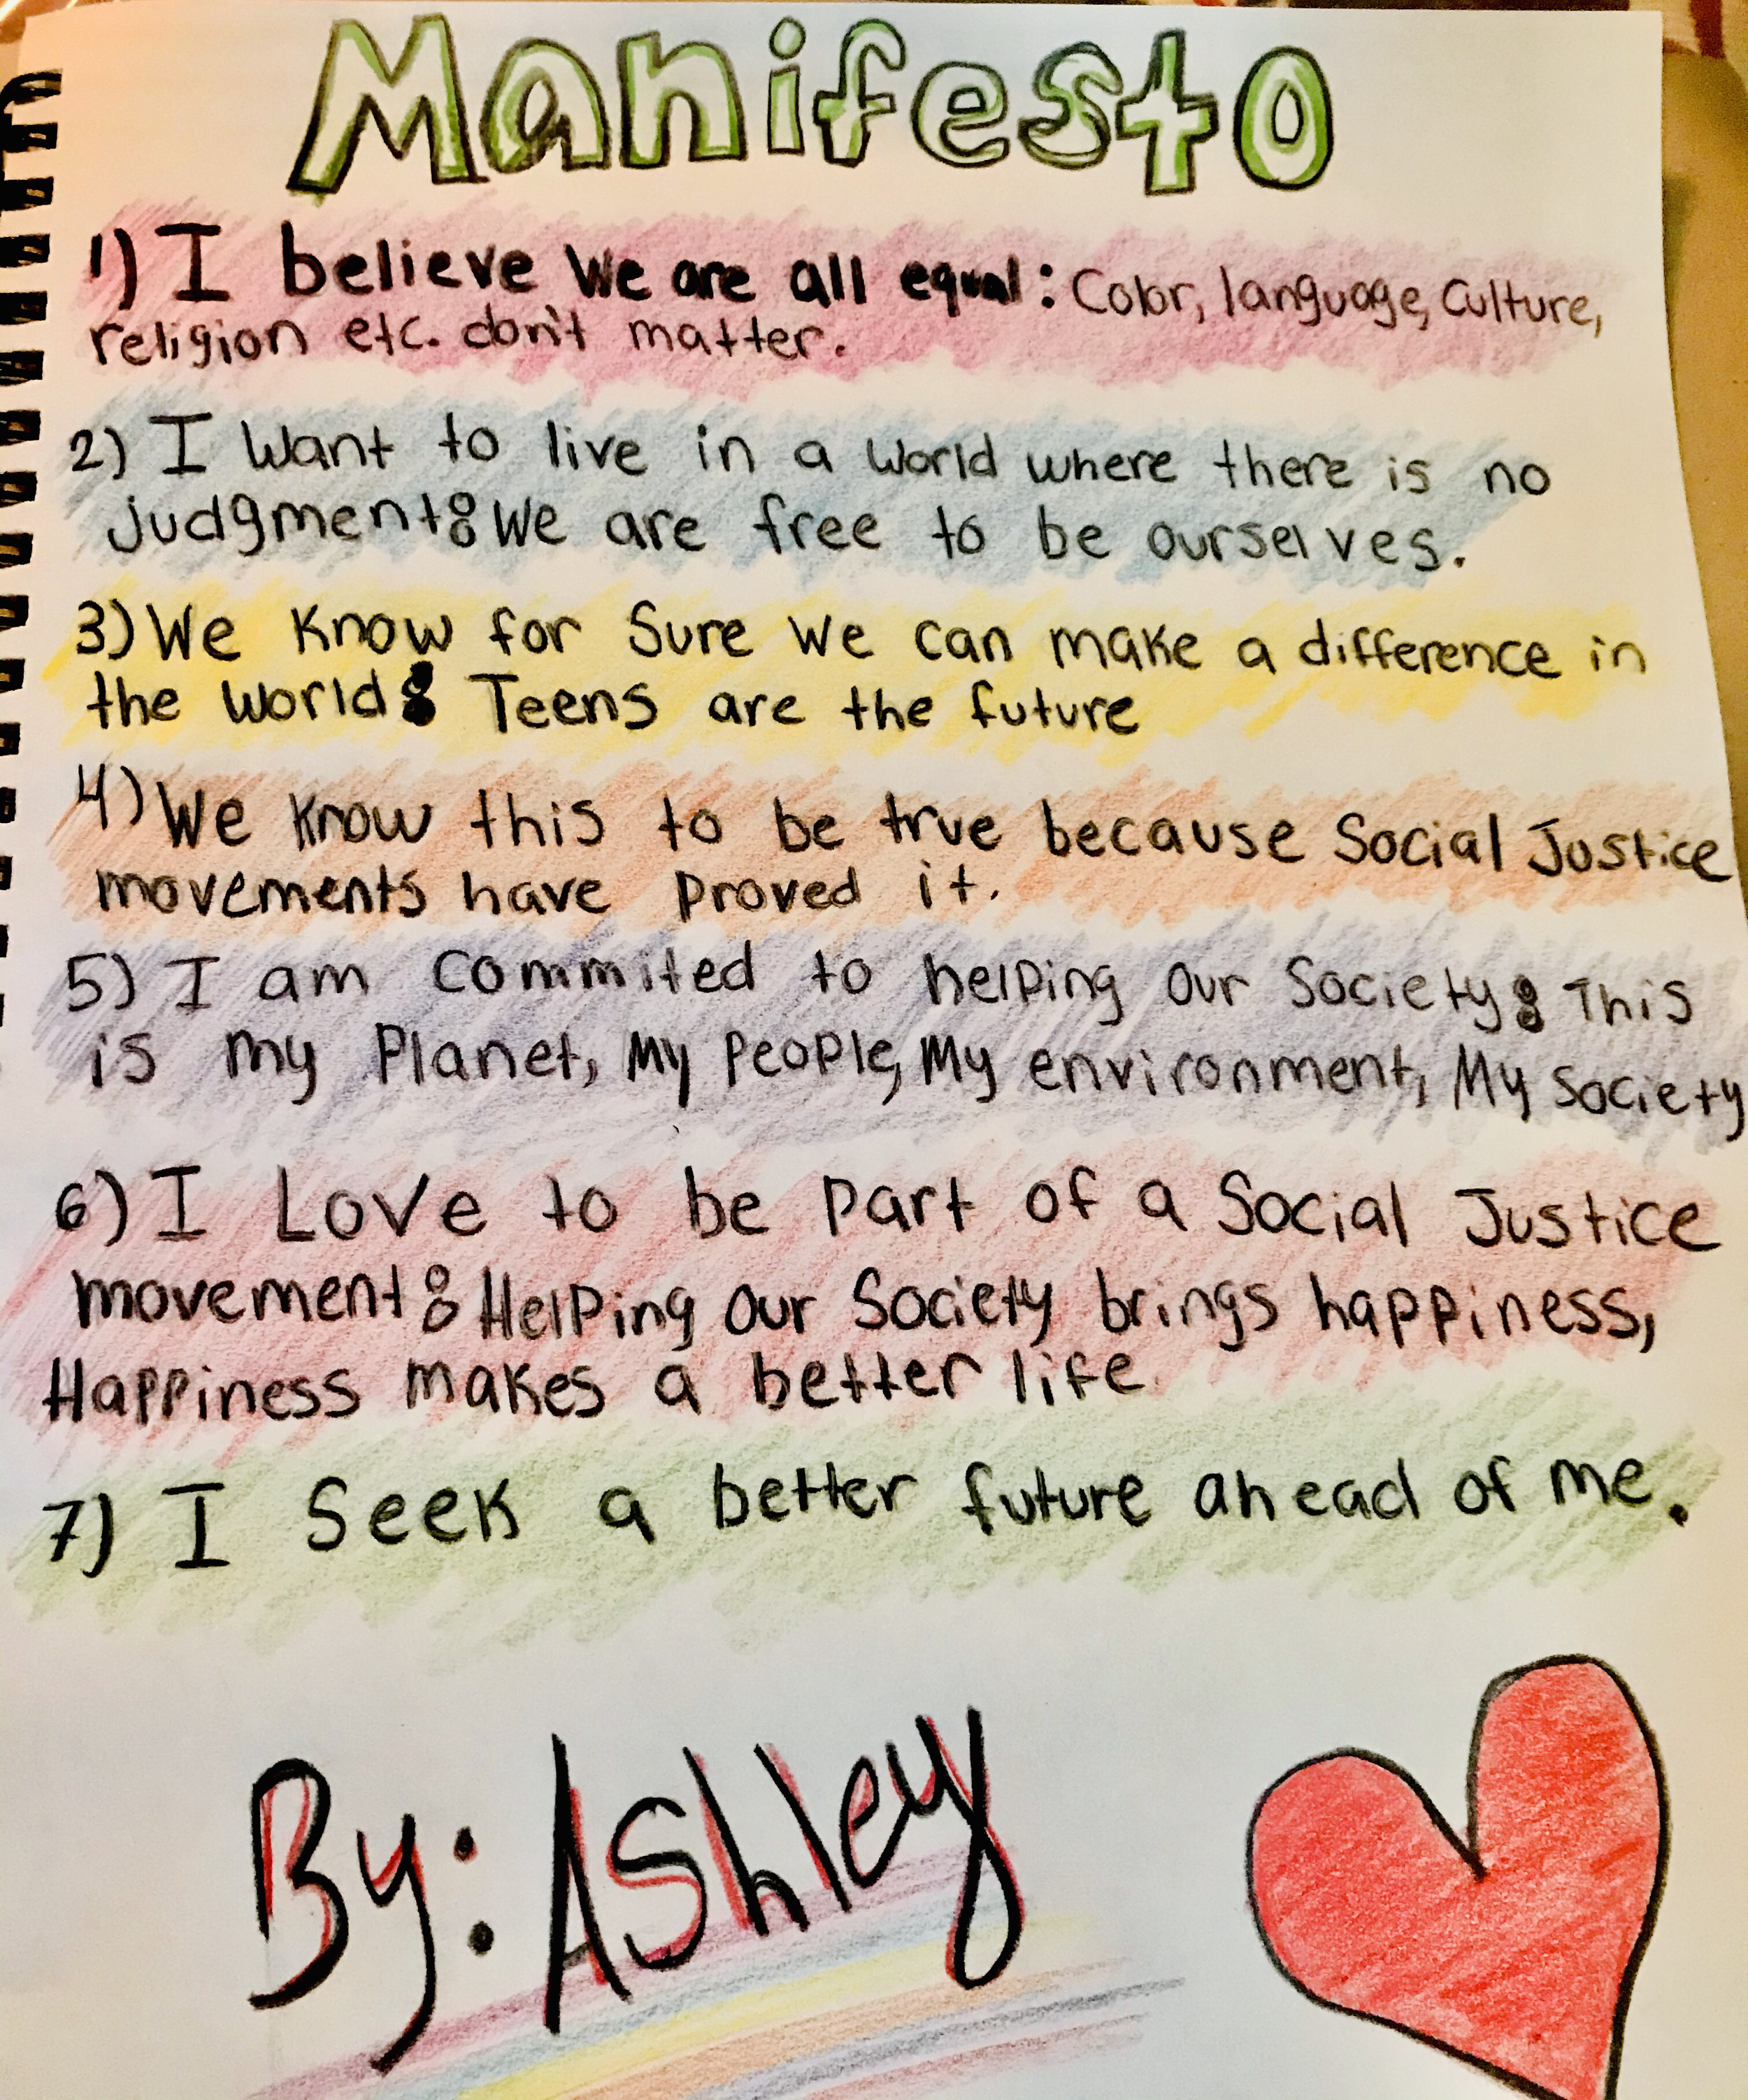 Manifesto
1) I believe We are all equal: Color, language, Culture,
religion etc. don't matter.
2) I Want to live in a World where there is no
judgment: We are free to be ourselves.
3) We Know for Sure We can make a difference in
the World: Teens are the future
4) We Know this to be true because Social Justice
movements have Proved it.
5) I am Commited to helping Our Society: This
is my Planet, My People, My environment, My Society
6) I Love to be Part of a Social Justice
movement: Helping Our Society brings happiness,
Happiness makes a better life.
7) I Seek a better future ahead of me.
By: Ashley